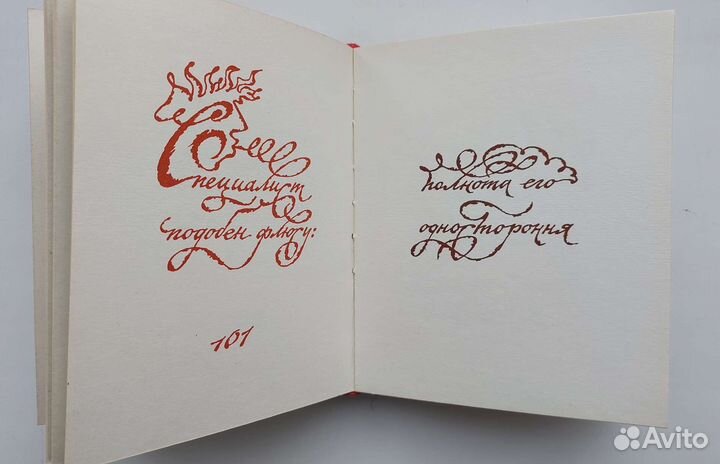 Специалист
подобен флюсу:
101
полнота его
одностороння
Avito